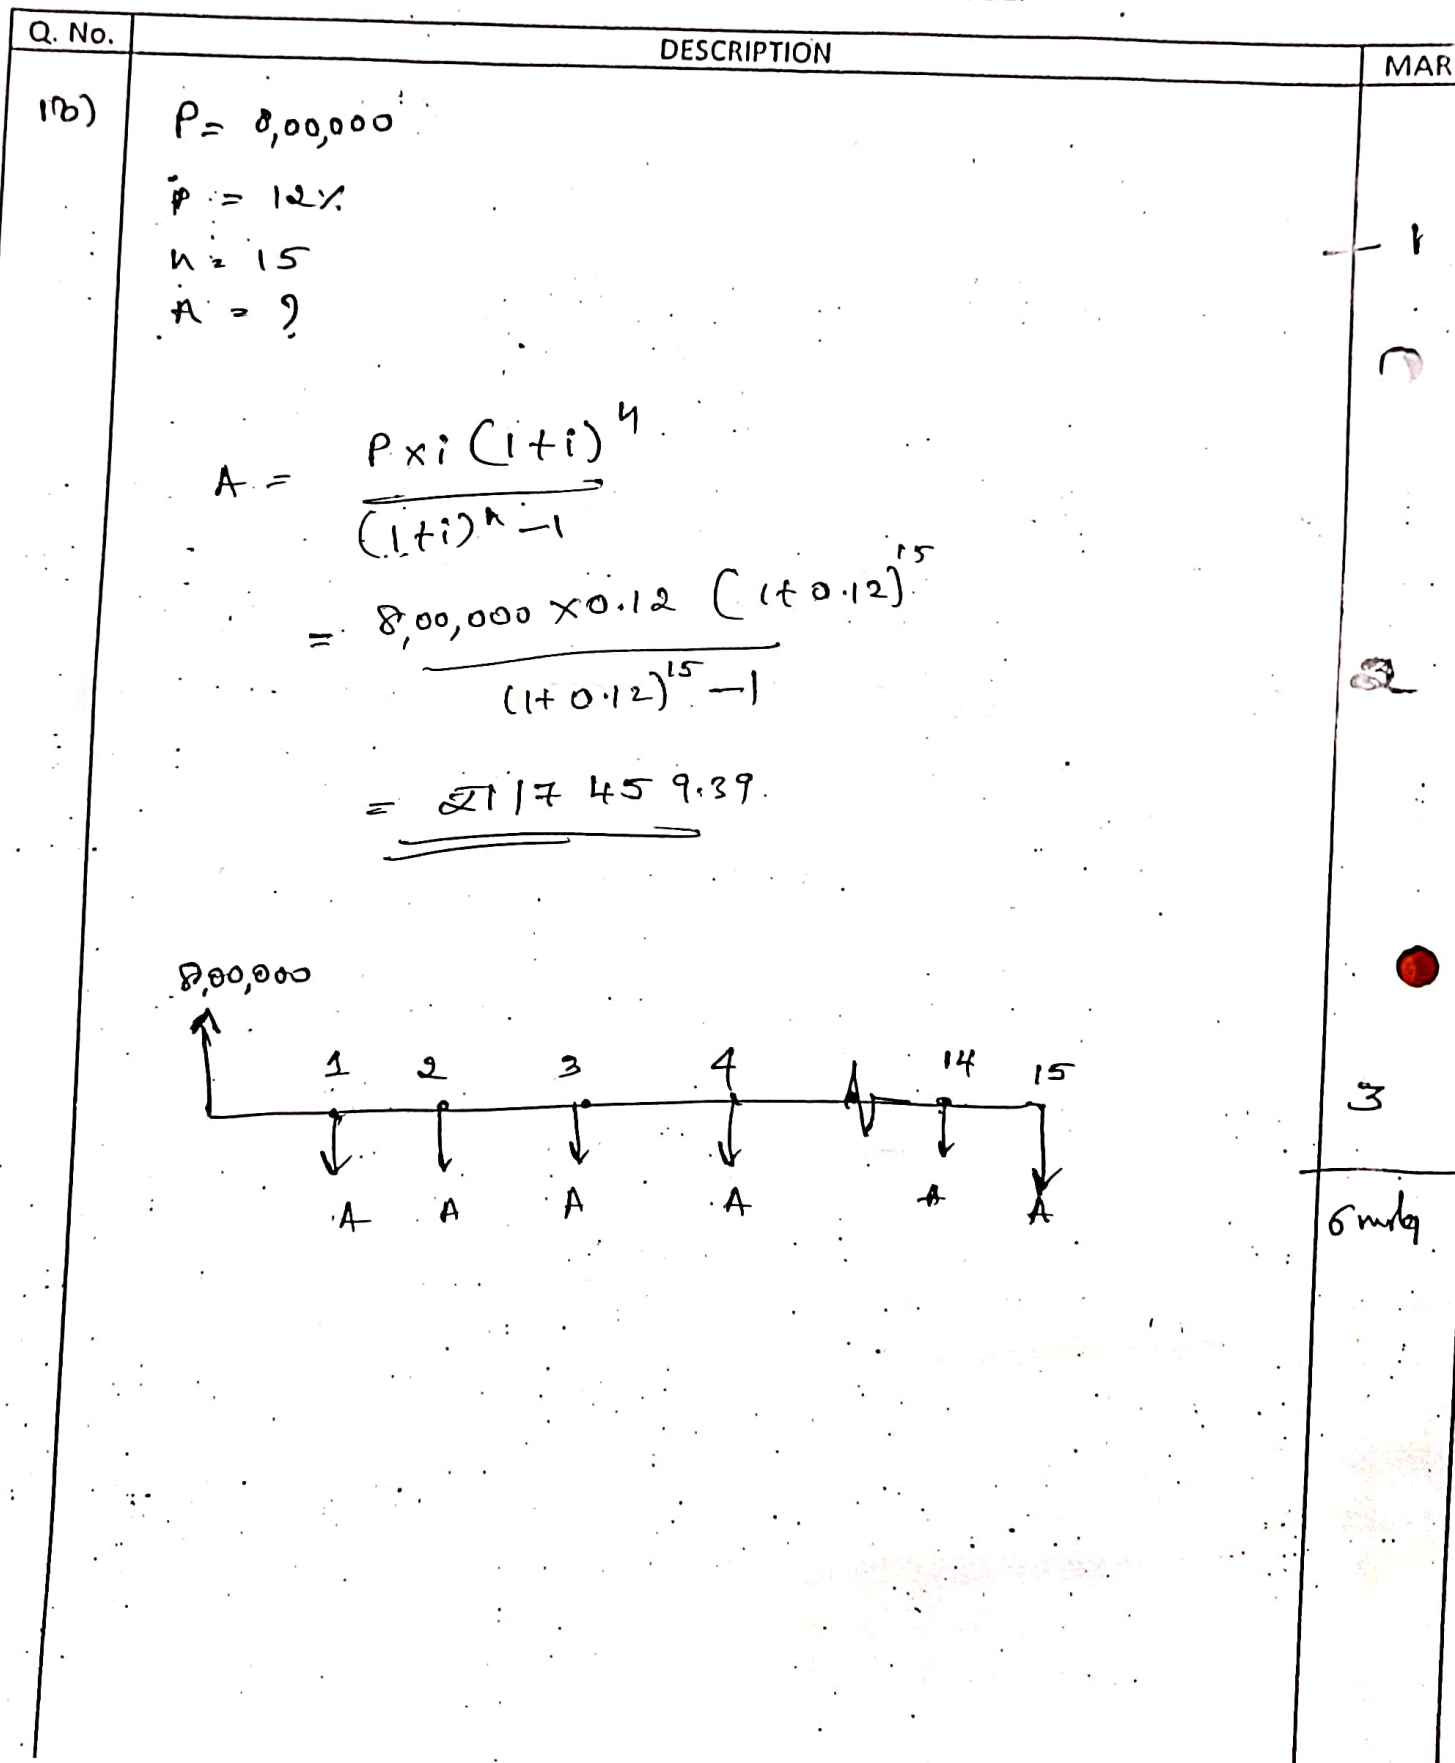 Q. No. DESCRIPTION MAR
17b) P = 8,00,000
i = 12%
n = 15 — 1
A = ?
A = P x i (1+i)^n
(1+i)^n - 1
= 8,00,000 x 0.12 (1+0.12)^15
(1+0.12)^15 - 1 2
= 117 459.39.
8,00,000
1 2 3 4 14 15 3
A A A A A A
6